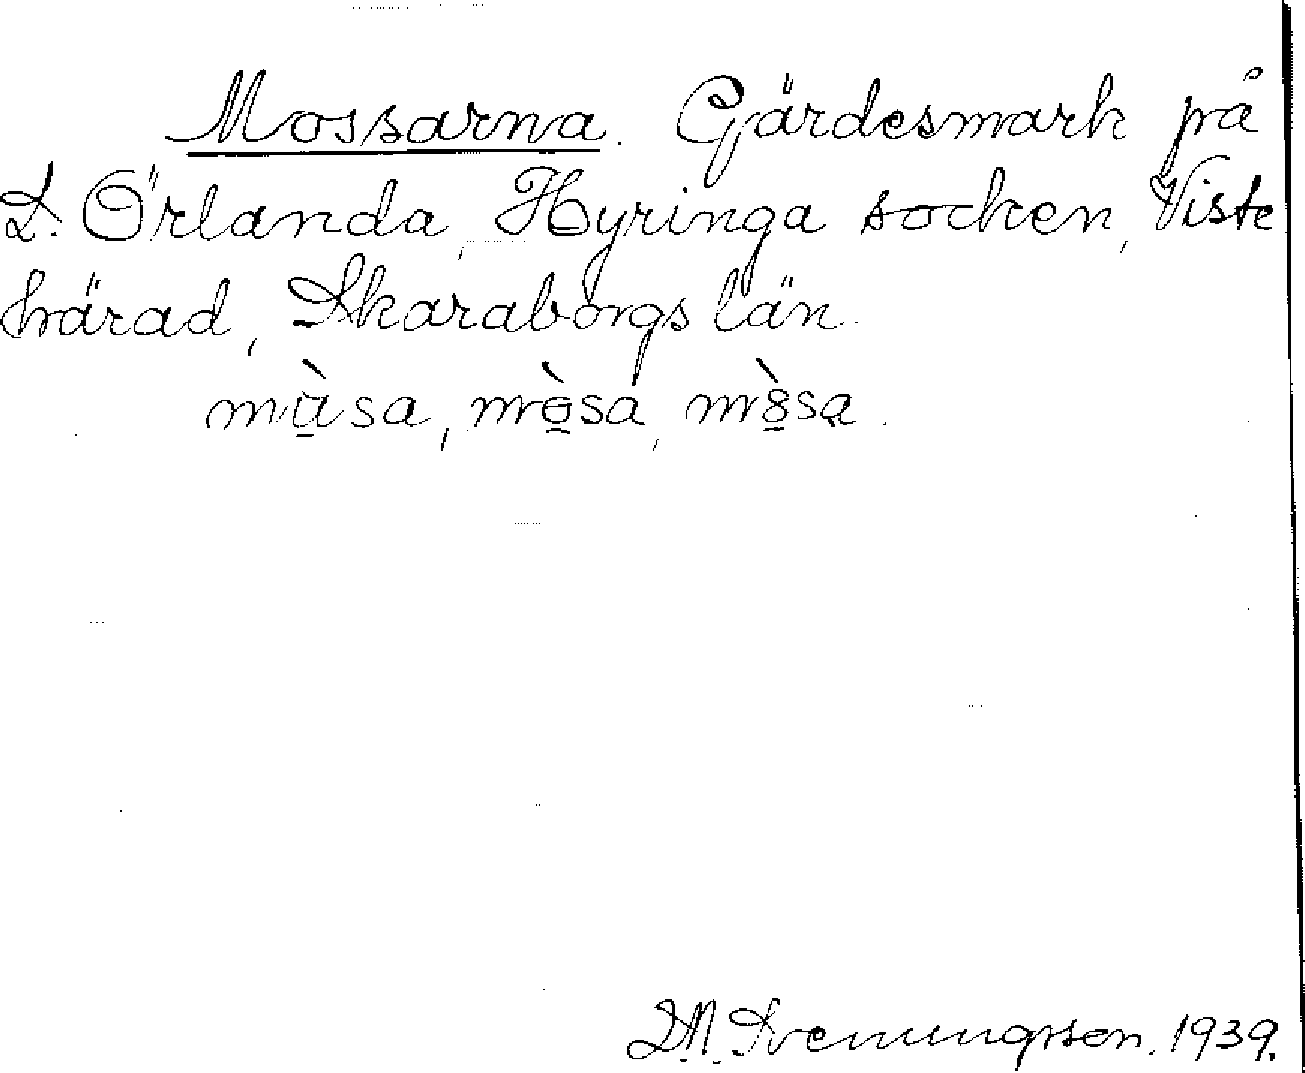 Mossarna. Gärdesmark på
L. Örlanda, Hyringa socken, Viste
härad, Skaraborgs län.
mùsa, mòsa, mòsa.
Svenungsson. 1939.